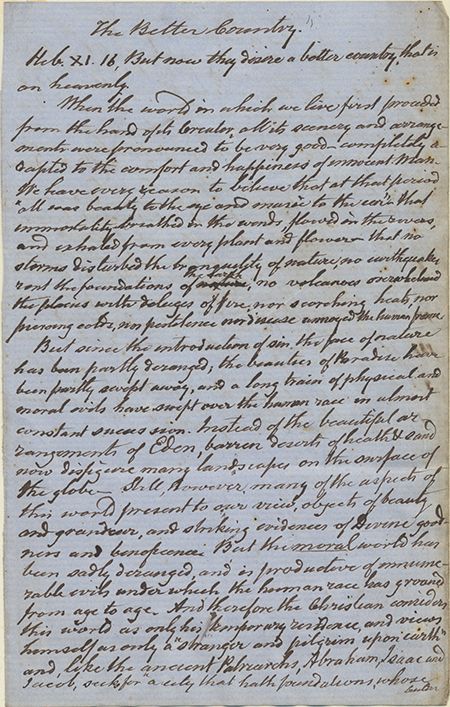 The Better Country.
Heb. XI. 16 But now they desire a better country, that is
an heavenly.
When the world in which we live first proceeded
from the hand of its Creator, all its scenery and arrange
ments were pronounced to be very good - completely a
dapted to the comfort and happiness of innocent Man.
We have every reason to believe that at that period
"all was beauty to the eye and music to the ear" that
immortality breathed in the winds, flowed in the rivers,
and exhaled from every plant and flower - that no
storms disturbed the tranquility of nature, no earthquakes
rent the foundations of the hills, no volcanoes overwhelmed
the places with deluges of fire, nor scorching heats, nor
piercing colds, nor pestilence nor disease annoyed the human frame.
But since the introduction of sin the face of nature
has been partly deranged, the beauties of Paradise have
been partly swept away, and a long train of physical and
moral evils have swept over the human race in almost
constant succession. Instead of the beautiful ar
rangements of Eden, barren deserts of heath & sand
now disfigure many landscapes on the surface of
the globe - Still, however, many of the aspects of
this world present to our view, objects of beauty
and grandeur, and striking evidences of Divine good-
ness and beneficence. But the moral world has
been sadly deranged, and is productive of innume-
rable evils under which the human race has groaned
from age to age. And therefore the Christian considers
this world as only his temporary residence, and views
himself as only a "stranger and pilgrim upon earth"
and, like the ancient Patriarchs, Abraham, Isaac and
Jacob, seeks for "a city that hath foundations, whose
builder